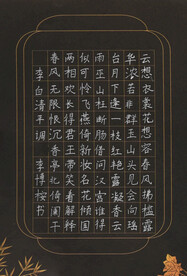 云想衣裳花想容春风拂槛露
华浓若非群玉山头见会向瑶
台月下逢一枝红艳露凝香云
雨巫山枉断肠借问汉宫谁得
似可怜飞燕倚新妆名花倾国
两相欢长得君王带笑看解释
春风无限恨沉香亭北倚阑干
李白清平调 李 书